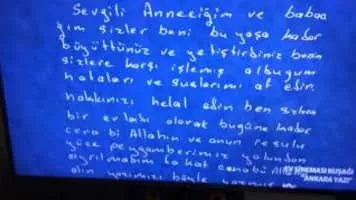 Sevgili Anneciğim ve babacı
ğım sizler beni bu yaşa kadar
büyüttünüz ve yetiştirdiniz benim
sizlere karşı işlemiş olduğum
hataları ve suçlarımı af edin
hakkınızı helal edin ben sizlere
bir evladı olarak bugüne kadar
cena bi Allahın ve onun resulu
yüce peygamberimiz yolundan
ayrılmadım fakat cenabü Alla
alın yazımızı böyle yazmış
EV SİNEMASI KUŞAĞI
"ANKARA YAZI"